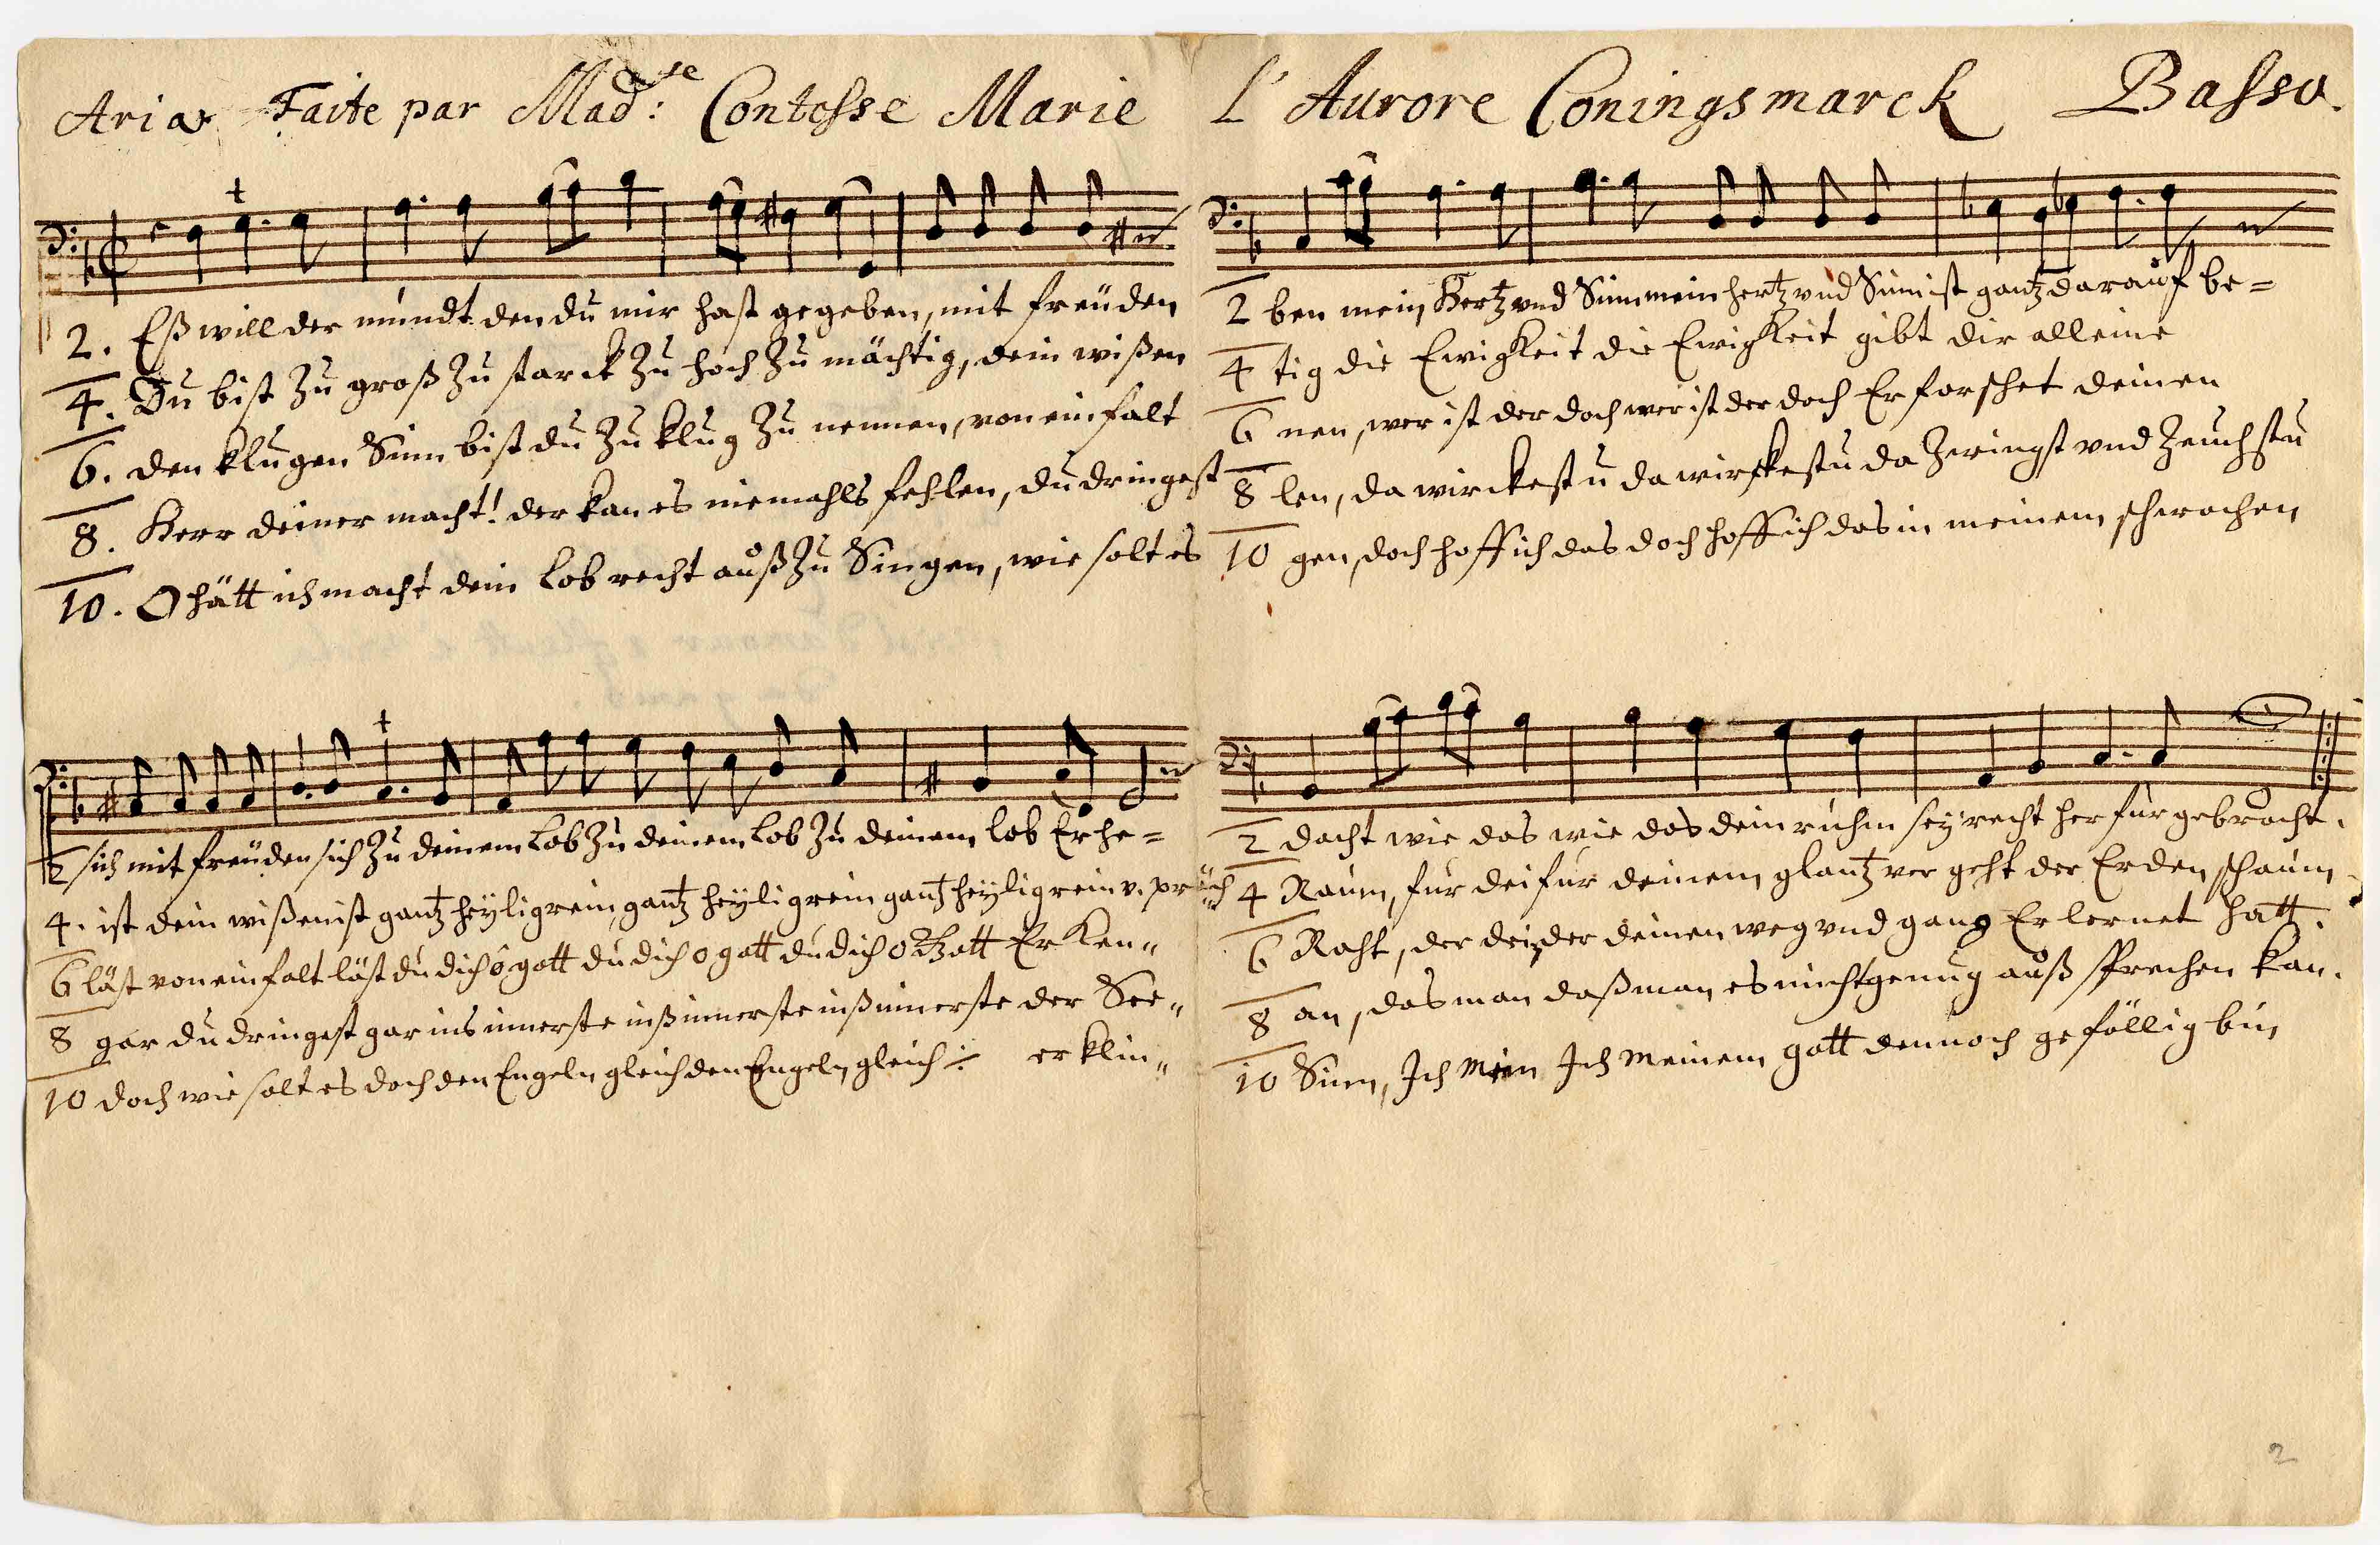 Aria Faite par Mad:se Contesse Marie L'Aurore Coningsmarck Basso.
2. Eß will der mundt den du mir hast gegeben, mit freüden
4. Du bist zu groß zu starck zu hoch zu mächtig, dein wißen
6. den klugen Sinn bist du zu klug zu nennen, von einfalt
8. Herr deiner macht! der kan es niemahls fehlen, du dringest
10. O hätt ich macht dein Lob recht auß zu Singen, wie solt es
2 ben mein Hertz und Sinn mein hertz und Sinn ist gantz darauf be=
4 tig die Ewigkeit die Ewigkeit gibt dir alleine
6 nen, wer ist der doch wer ist der doch Erforschet deinen
8 len, da wirckestu da wirckestu da zwingst und zeuchstu
10 gen, doch hoff ich das doch hoff ich das in meinem schwachen
2 sich mit freüden sich zu deinem Lob zu deinem Lob zu deinem lob Erhe=
4. ist dein wißen ist gantz heÿlig rein gantz heÿlig rein gantz heÿlig rein v. präch
6 läst von einfalt läst du dich ô gott du dich o gott du dich o Gott Er Ken"
8 gar du dringest gar ins innerste inß innerste inß innerste der See"
10 doch wie solt es doch den Engeln gleich den Engeln gleich :/: erklin"
2 dacht wie das wie das dein ruhm seÿ recht herfür gebracht.
4 Raum, für dei für deinem glantz vergeht der Erden schaum
6 Raht, der dein der deinen weg und gang Erlernet hatt.
8 an, das man daß man es nicht genug auß sprechen kan.
10 Sinn, Ich Mein Ich Meinem gott dennoch gefällig bin
2